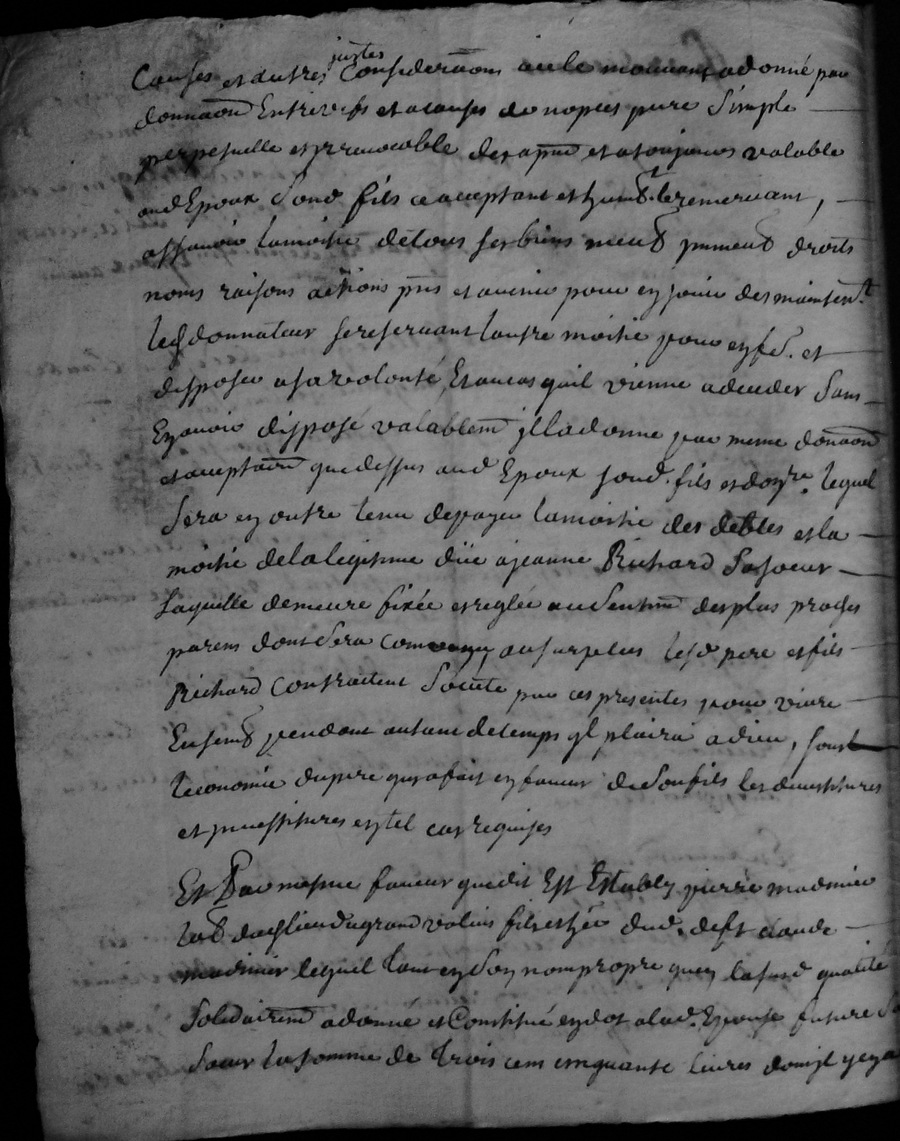 justes
Causes et autres Considerãons icele mouvant a donné par
donnaõn Entrevifs et a causes de nopces pure Simple
perpetuelle et jrrevocable des apnt et a toujours valable
aud Epoux Sond fils ce acceptant et humbt le remerciant,
assavoir la moitié de tous ses biens meubs jmmeubs droits
noms raisons actions pnts et avenir pour en jouir des maintent
led donnateur se reservant l'autre moitié pour en fe. et
disposer a sa volonté, Et au cas quil vienne a deceder Sans
En avoir disposé valablemt jl la donne par meme donnaõn
et acceptaõn que dessus aud Epoux sond. fils et donre. lequel
Sera en outre tenu de payer la moitié des debtes et la
moitié de la legitime düe a jeanne Richard Sa soeur
Laquelle demeure fixée et reglée au Sentimt des plus proches
parens dont Sera convenu au surplus lesd pere et fils
Richard Contractent Societe par ces presentes pour vivre
Ensemb pendant autant de temps ql plaira a dieu, sous
l'economie du pere qui a fait en faveur de Son fils les devestitures
et jnvestitures en tel cas requises
Et Par mesme faveur que dit Est Estably pierre madinier
lab dud lieu du grand fils et her dud. deft claude
madinier lequel tant en Son nom propre quen la susd qualité
Solidairemt a donné et Constitué en dot a lad. Epouse future Sa
Soeur la somme de trois cent cinquante livres dont jl y en a